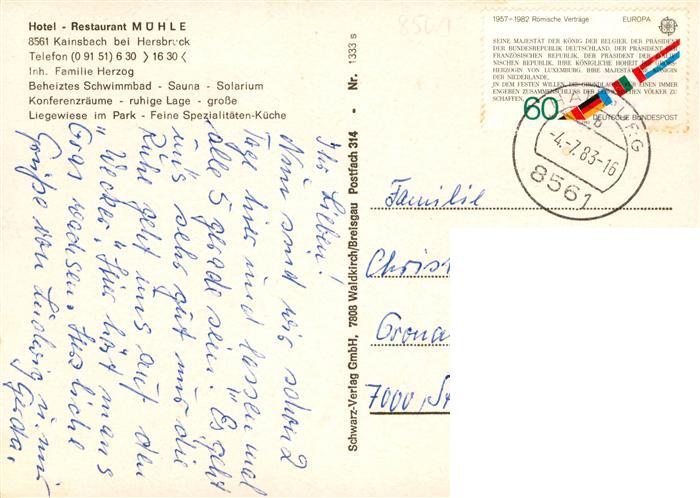 Hotel - Restaurant MÜHLE
8561 Kainsbach bei Hersbruck
Telefon (0 91 51) 6 30 > 16 30 <
Inh. Familie Herzog
Beheiztes Schwimmbad - Sauna - Solarium
Konferenzräume - ruhige Lage - große
Liegewiese im Park - Feine Spezialitäten-Küche
Ihr Lieben!
Nun sind wir schon 2
Tage hier und lassen mal
alle 5 gerade sein. Es geht
uns sehr gut nur die
Ruhe geht uns auf den
"Wecker." Hier hört man's
Gras wachsen. Herzliche
Grüße von Ludwig u. mir
Gerda.
Schwarz-Verlag GmbH, 7808 Waldkirch/Breisgau Postfach 314 - Nr. 1333 s
8561
1957-1982 Römische Verträge EUROPA
SEINE MAJESTÄT DER KÖNIG DER BELGIER, DER PRÄSIDENT
DER BUNDESREPUBLIK DEUTSCHLAND, DER PRÄSIDENT
FRANZÖSISCHEN REPUBLIK, DER PRÄSIDENT
NISCHEN REPUBLIK, IHRE KÖNIGLICHE HOHEIT
HERZOGIN VON LUXEMBURG, IHRE MAJESTÄT
DER NIEDERLANDE,
IN DEM FESTEN WILLEN, DIE GRUNDLAGEN FÜR EINEN IMMER
ENGEREN ZUSAMMENSCHLUSS DER EUROPÄISCHEN VÖLKER ZU
SCHAFFEN,
60
DEUTSCHE BUNDESPOST
-4.-7.83-16
8561
Familie
Christ
Grona
7000, St